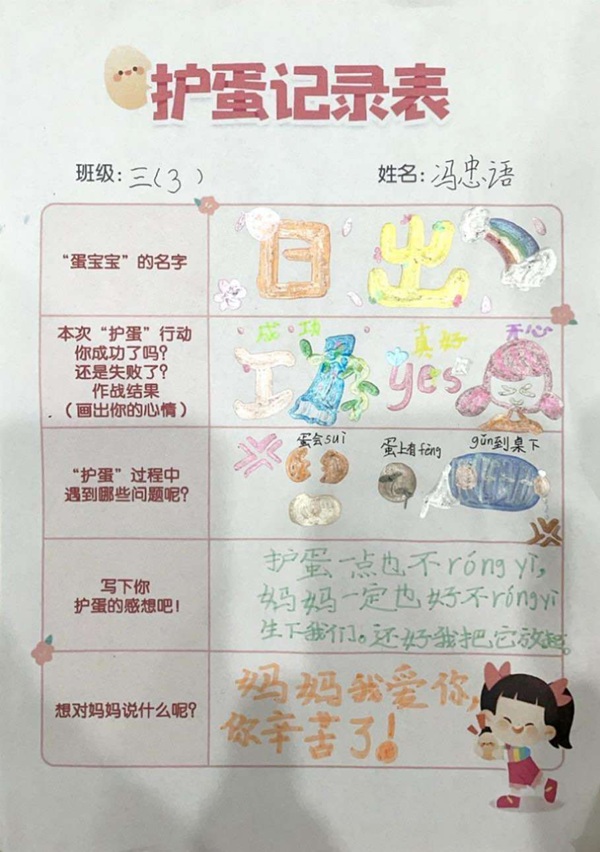 护蛋记录表
班级：三（3）
姓名：冯忠语
“蛋宝宝”的名字
日出
本次“护蛋”行动
你成功了吗？
还是失败了？
作战结果
（画出你的心情）
成功
真好
开心
yes
“护蛋”过程中
遇到哪些问题呢？
蛋会suì
蛋上有fèng
gǔn到桌下
写下你
护蛋的感想吧！
护蛋一点也不róng yì,
妈妈一定也好不róngyì
生下我们。还好我把它放
想对妈妈说什么呢？
妈妈我爱你,
你辛苦了！